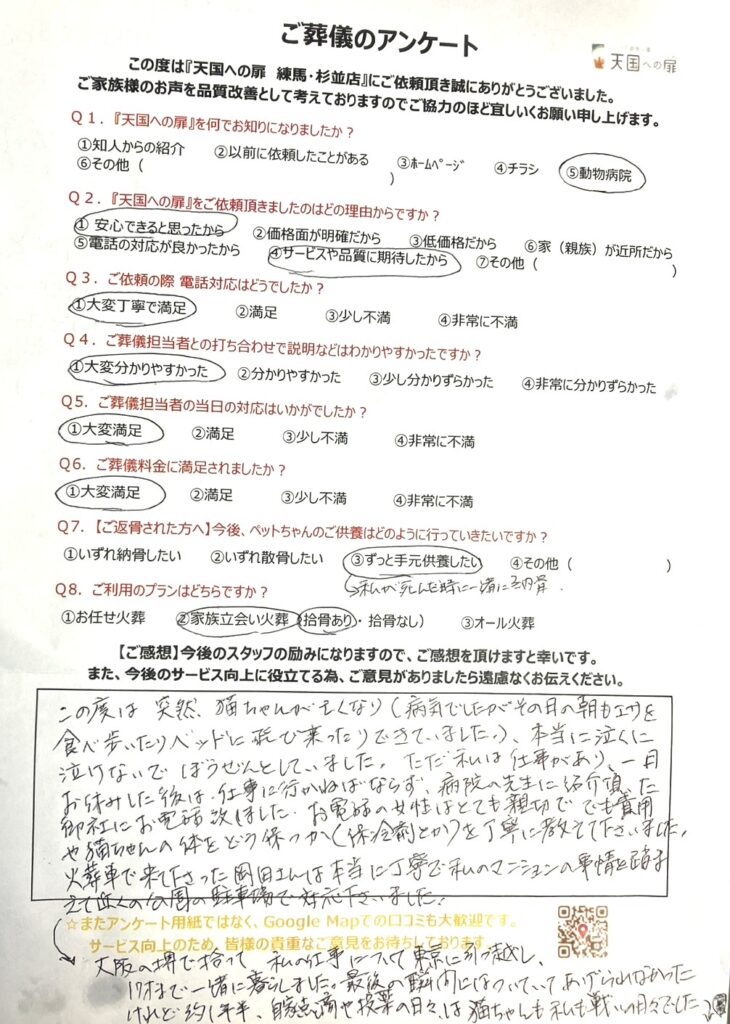 ご葬儀のアンケート
天国への扉
この度は『天国への扉 練馬・杉並店』にご依頼頂き誠にありがとうございました。
ご家族様のお声を品質改善として考えておりますのでご協力のほど宜しいくお願い申し上げます。
Q1.『天国への扉』を何でお知りになりましたか？
①知人からの紹介 ②以前に依頼したことがある ③ﾎｰﾑﾍﾟｰｼﾞ ④チラシ ⑤動物病院
⑥その他（ ）
Q2.『天国への扉』をご依頼頂きましたのはどの理由からですか？
① 安心できると思ったから ②価格面が明確だから ③低価格だから ⑥家（親族）が近所だから
⑤電話の対応が良かったから ④サービスや品質に期待したから ⑦その他（ ）
Q3．ご依頼の際 電話対応はどうでしたか？
①大変丁寧で満足 ②満足 ③少し不満 ④非常に不満
Q4．ご葬儀担当者との打ち合わせで説明などはわかりやすかったですか？
①大変分かりやすかった ②分かりやすかった ③少し分かりずらかった ④非常に分かりずらかった
Q5．ご葬儀担当者の当日の対応はいかがでしたか？
①大変満足 ②満足 ③少し不満 ④非常に不満
Q6．ご葬儀料金に満足されましたか？
①大変満足 ②満足 ③少し不満 ④非常に不満
Q7．【ご返骨された方へ】今後、ペットちゃんのご供養はどのように行っていきたいですか？
①いずれ納骨したい ②いずれ散骨したい ③ずっと手元供養したい ④その他（ ）
↳私が死んだ時に一緒に納骨．
Q8．ご利用のプランはどちらですか？
①お任せ火葬 ②家族立会い火葬（拾骨あり・拾骨なし） ③オール火葬
【ご感想】今後のスタッフの励みになりますので、ご感想を頂けますと幸いです。
また、今後のサービス向上に役立てる為、ご意見がありましたら遠慮なくお伝えください。
この度は 突然、猫ちゃんが亡くなり（病気でしたがその日の朝もエサを
食べ歩いたりベッドに飛び乗ったりできていました。）、本当に泣くに
泣けないで ぼうぜんとしていました。ただ私は仕事があり、一日
お休みした後は、仕事に行かねばならず、病院の先生に紹介頂いた
御社にお電話致しました。お電話の女性はとても親切で でも費用
や猫ちゃんの体をどう保つか（保冷剤とか）を丁寧に教えて下さいました。
火葬車で来て下さった岡田さんは本当に丁寧で私のマンションの事情を踏ま
えて近くの公園の駐車場で対応下さいました。
☆またアンケート用紙ではなく、Google Mapでの口コミも大歓迎です。
サービス向上のため、皆様の貴重なご意見をお待ちしております
大阪の堺で拾って 私の仕事について東京に引っ越し、
17才まで一緒に暮らしました。最後の瞬間にはついていてあげられなかった
けれど約1年半、自家点滴や投薬の日々は猫ちゃんも私も戦いの日々でした